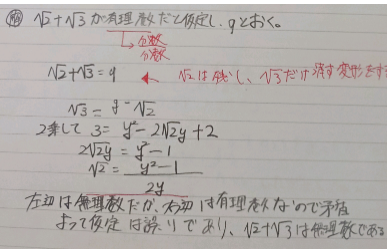 √2+√3が有理数だと仮定し、qとおく。
分数
分数
√2+√3=q ← √2は残し、√3だけ消す変形をする
√3=y-√2
2乗して 3=y²-2√2y+2
2√2y=y²-1
√2=y²-1
2y
左辺は無理数だが、右辺は有理数なので矛盾
よって仮定は誤りであり、√2+√3は無理数である